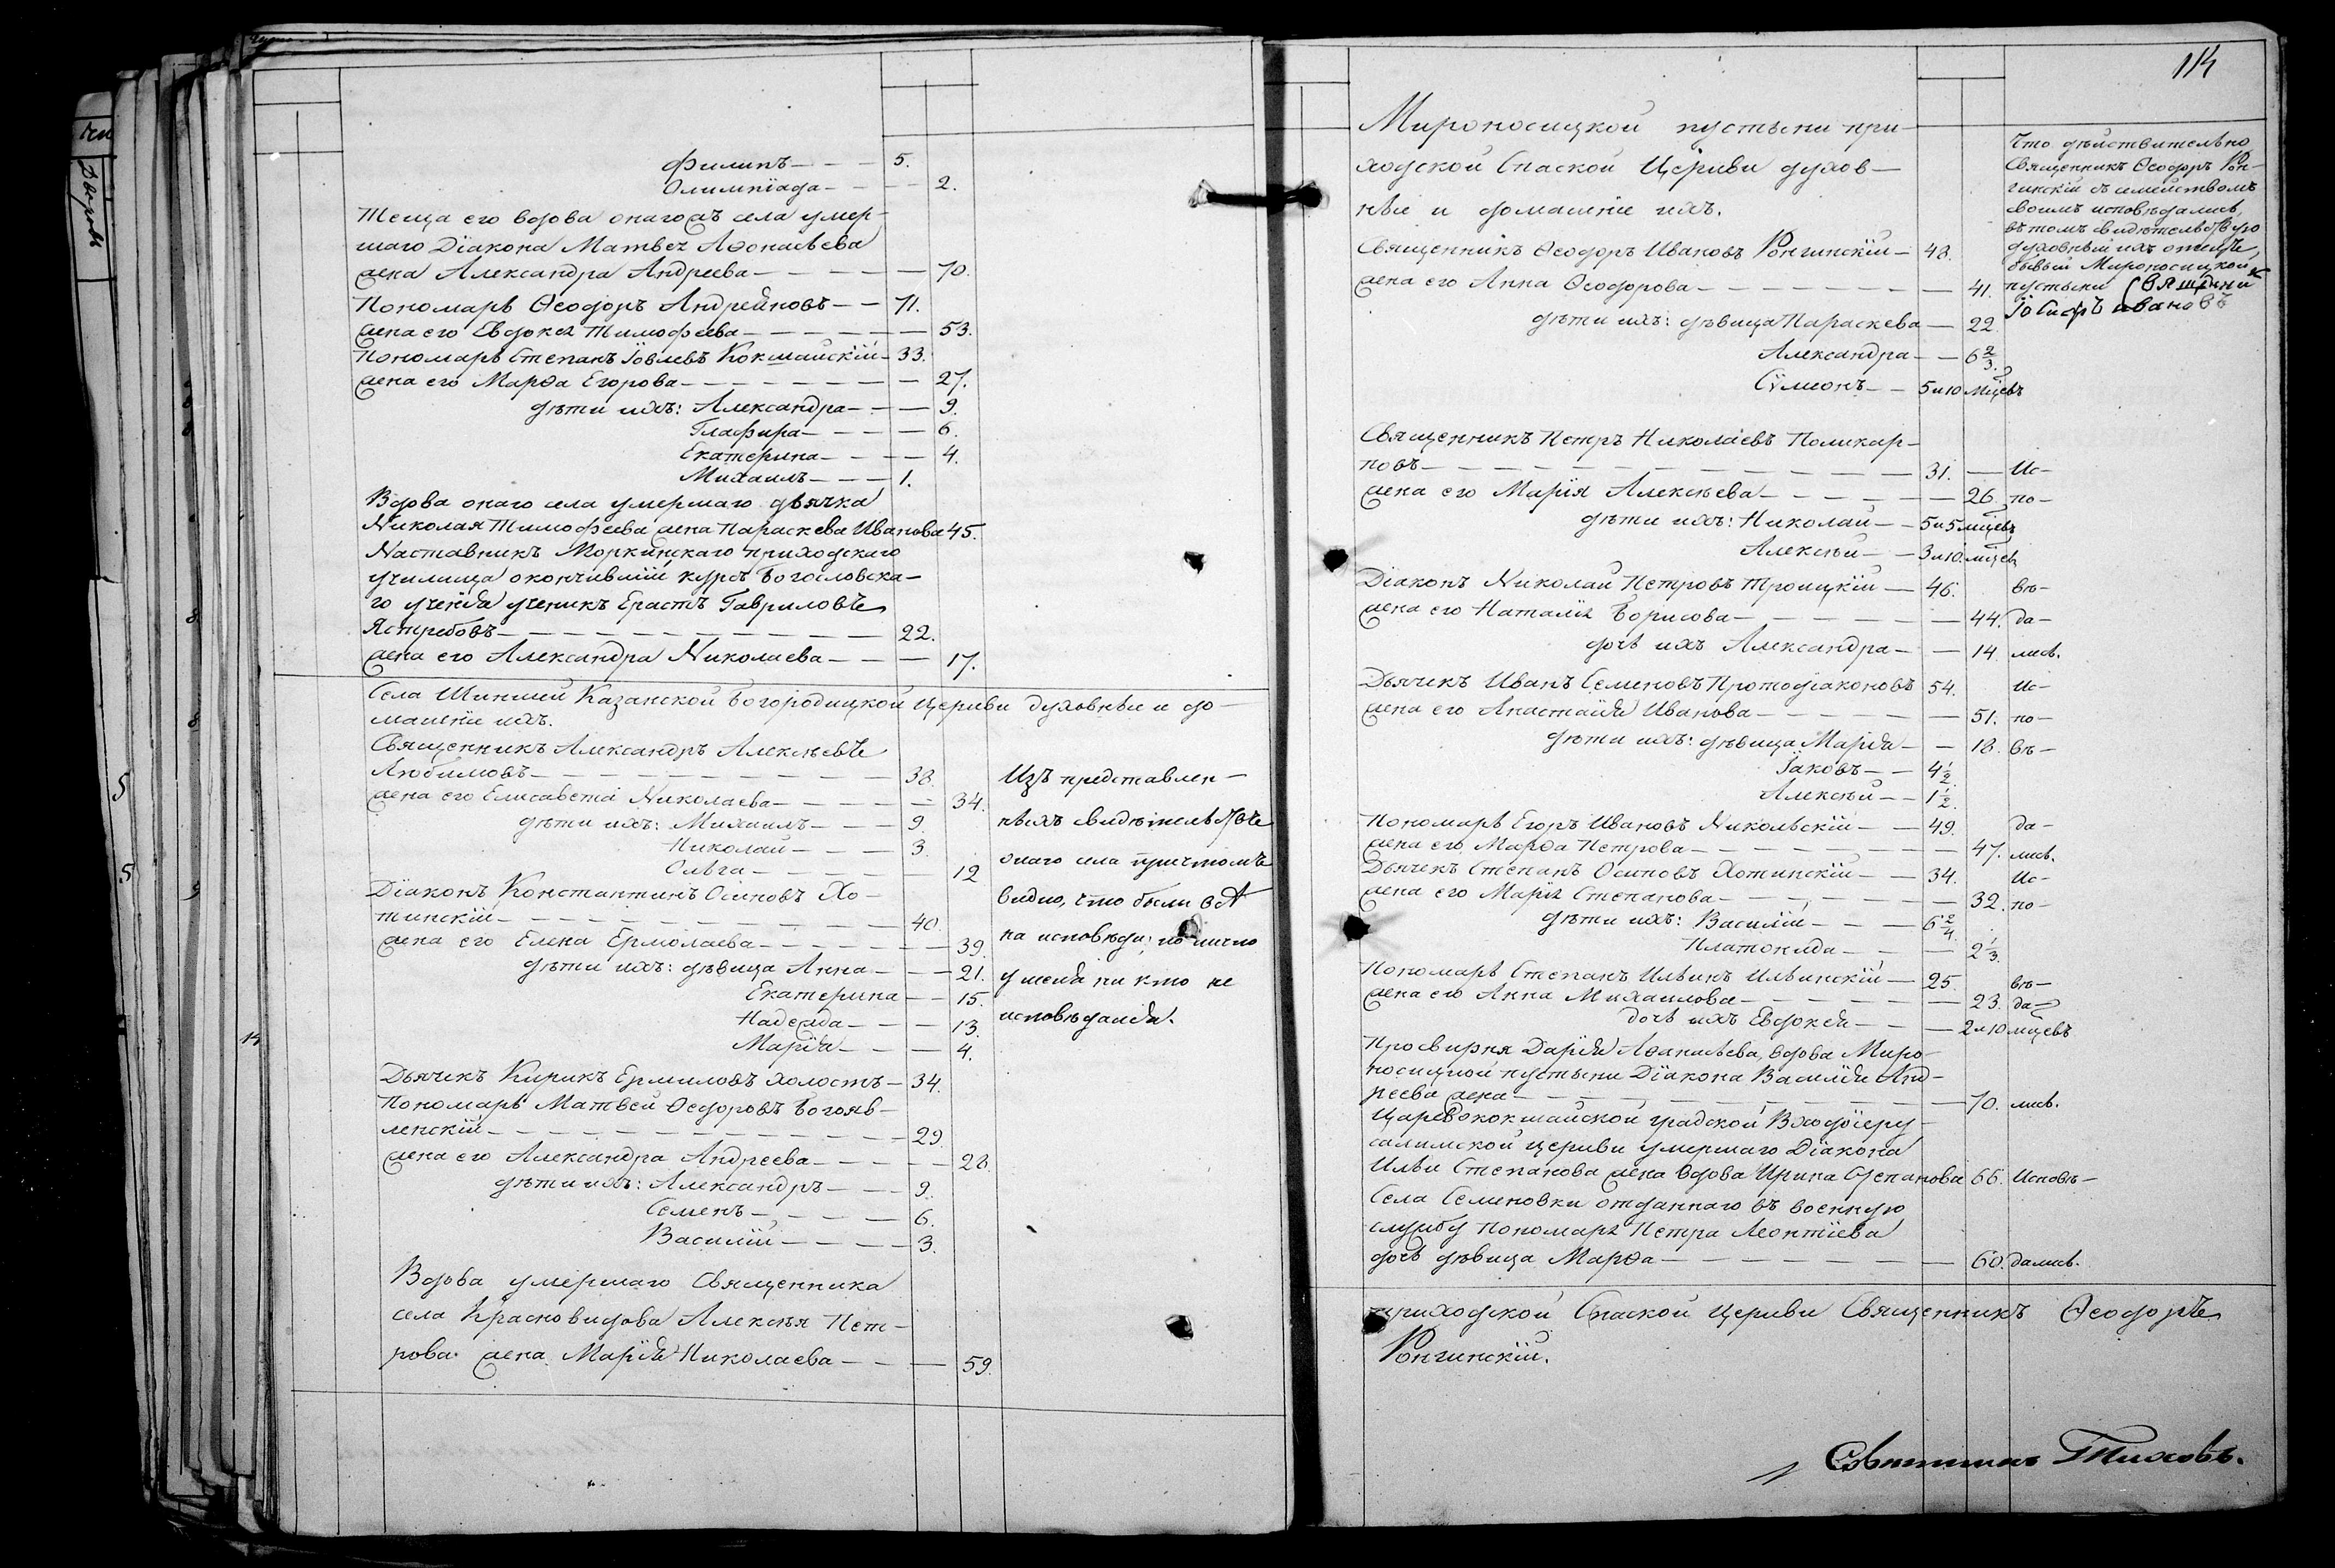 Филипъ — 5.
Олимпіада — 2.
Теща его вдова онагожъ села умер-
шаго Діакона Матвея Аѳонасьева
жена Александра Андреева — 70.
Пономарь Ѳеодоръ Андреяновъ — 71.
жена его Евдокея Тимофеева — 53.
Пономарь Степанъ Іовлевъ Кокшайскій — 33.
жена его Марѳа Егорова — 27.
дѣти ихъ: Александра — 9.
Глафира — 6.
Екатерина — 4.
Михаилъ — 1.
Вдова онаго села умершаго дьячка
Николая Тимофеева жена Параскева Иванова 45.
Наставникъ Моркинскаго приходскаго
училища окончившій курсъ Богословска-
го ученія ученикъ Ерастъ Гавриловъ
Ястребовъ — 22.
жена его Александра Николаева — 17.
Села Шиншей Казанской Богородицкой Церкви духовные и до-
машніе ихъ.
Священникъ Александръ Алексѣевъ
Любимовъ — 38.
жена его Елисавета Николаева — 34.
дѣти ихъ: Михаилъ — 9.
Николай — 3.
Ольга — 12
Діаконъ Константинъ Осиповъ Хо-
тинскій — 40.
жена его Елена Ермолаева — 39.
дѣти ихъ: дѣвица Анна — 21.
Екатерина — 15.
Надежда — 13.
Марія — 4.
Дьячекъ Кирикъ Ермиловъ холостъ — 34.
Пономарь Матвей Ѳедоровъ Богояв-
ленскій — 29.
жена его Александра Андреева — 28.
дѣти ихъ: Александръ — 9.
Семенъ — 6.
Василій — 3.
Вдова умершаго Священника
села Красновидова Алексѣя Пет-
рова жена Марія Николаева — 59.
Изъ представлен-
ныхъ свидѣтельствъ
онаго села причтомъ
видно, что были всѣ
на исповѣди, но лично
у меня ни кто не
исповѣдался.
114
Мироносицкой пустыни при-
ходской Спаской Церкви духов-
ные и домашніе ихъ.
Священникъ Ѳеодоръ Ивановъ Ронгинскій — 48.
жена его Анна Ѳеодорова — 41.
дѣти ихъ: дѣвица Параскева — 22.
Александра — 6 2/3.
Сѷмеонъ — 5 и 10 мцевъ
Что дѣйствительно
Священникъ Ѳеодоръ Рон-
гинскій съ семействомъ
своимъ исповѣдались,
въ томъ свидѣтельствую
духовный ихъ отецъ,
бывый Мироносицкой
пустыни Священни
Іосифъ Ивановъ
Священникъ Петръ Николаевъ Поликар-
повъ — 31. — Ис-
жена его Марія Алексѣева — 26. по-
дѣти ихъ: Николай — 5 и 5 мцевъ
Алексѣй — 3 и 10. мцев
Діаконъ Николай Петровъ Троицкій — 46. вѣ-
жена его Наталія Борисова — 44. да-
дочь ихъ Александра — 14. лись.
Дьячекъ Иванъ Семеновъ Протодіаконовъ 54. Ис-
жена его Анастасія Иванова — 51. по-
дѣти ихъ: дѣвица Марія — 18. вѣ-
Іаковъ — 4 1/2
Алексѣй — 1 1/2.
Пономарь Егоръ Ивановъ Никольскій — 49. да-
жена его Марѳа Петрова — 47. лись.
Дьячекъ Степанъ Осиповъ Хотинскій — 34. Ис-
жена его Марія Степанова — 32. по-
дѣти ихъ: Василій — 6 2/4.
Платонида — 2 1/3.
Пономарь Степанъ Ильинъ Ильинскій — 25. вѣ-
жена его Анна Михаилова — 23. да-
дочь ихъ Евдокея — 2 и 10 мцевъ
Просвирня Дарія Аѳанасьева, вдова Миро-
носицкой пустыни Діакона Василія Анд-
реева жена — 70. лись.
Царевококшайской градской Входоіеру-
салимской церкви умершаго Діакона
Ильи Степанова жена вдова Ирина Степанова 66. Исповѣ-
Села Семеновки отданнаго въ военную
службу пономаря Петра Леонтіева
дочь дѣвица Марѳа — 60. дались.
приходской Спаской Церкви Священникъ Ѳеодоръ
Ронгинскій.
Тиховъ.